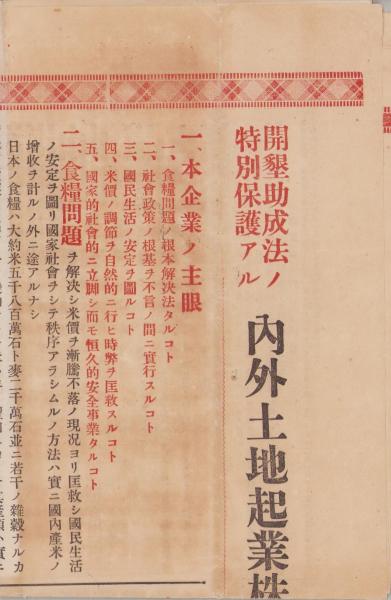 開墾助成法ノ
特別保護アル
內外土地起業株
一、本企業ノ主眼
一、食糧問題ノ根本解決法タルコト
二、社會政策ノ根基ヲ不言ノ間ニ實行スルコト
三、國民生活ノ安定ヲ圖ルコト
四、米價ノ調節ヲ自然的ニ行ヒ時弊ヲ匡救スルコト
五、國家的社會的ニ立脚シ而モ恒久的安全事業タルコト
二、食糧問題ヲ解決シ米價ヲ漸騰不落ノ現況ヨリ匡救シ國民生活
ノ安定ヲ圖リ國家社會ヲシテ秩序アラシムルノ方法ハ實ニ國內產米ノ
增收ヲ計ルノ外ニ途アルナシ
日本ノ食糧ハ大約米五千八百萬石ト麥二千萬石並ニ若干ノ雜穀ナルカ